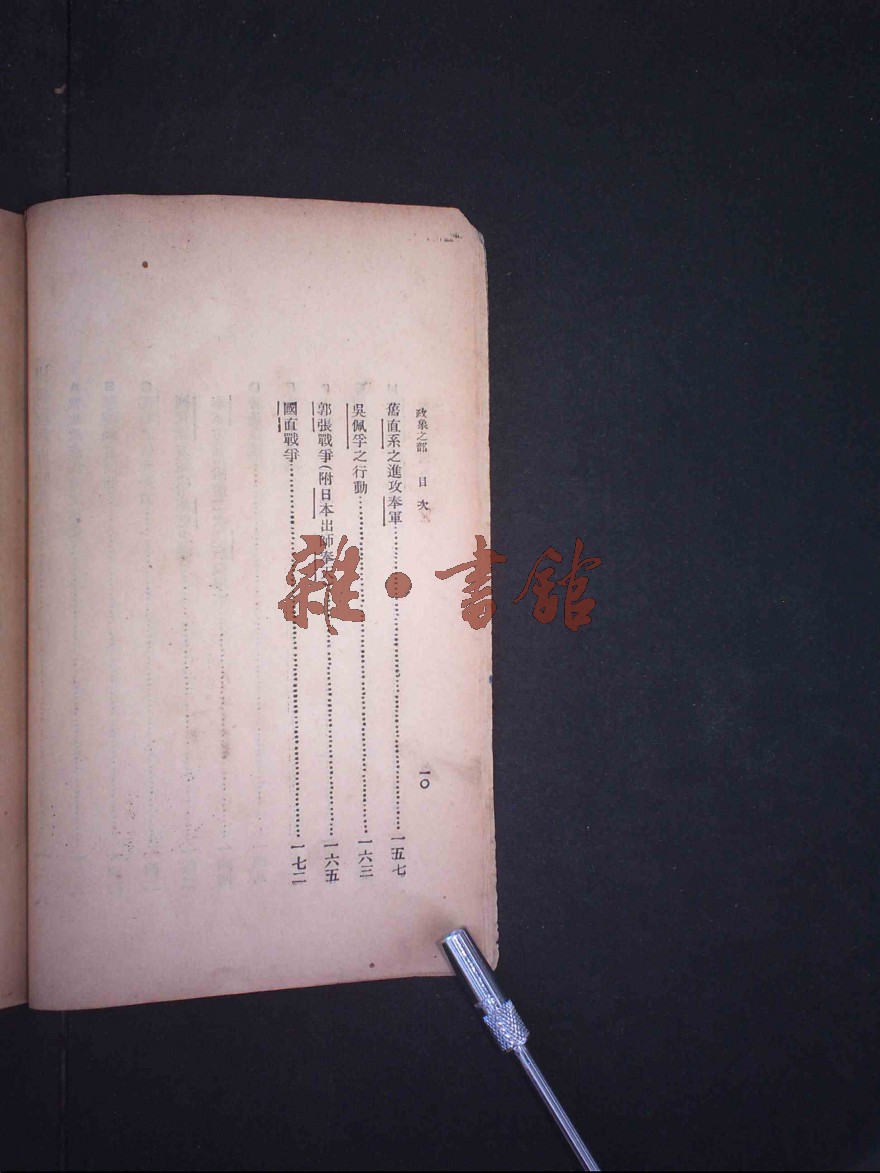 政象之部 目次 一〇
舊直系之進攻奉軍……一五七
吳佩孚之行動……一六三
郭張戰爭(附日本出師奉……一六五
國直戰爭……一七二
雜·書館